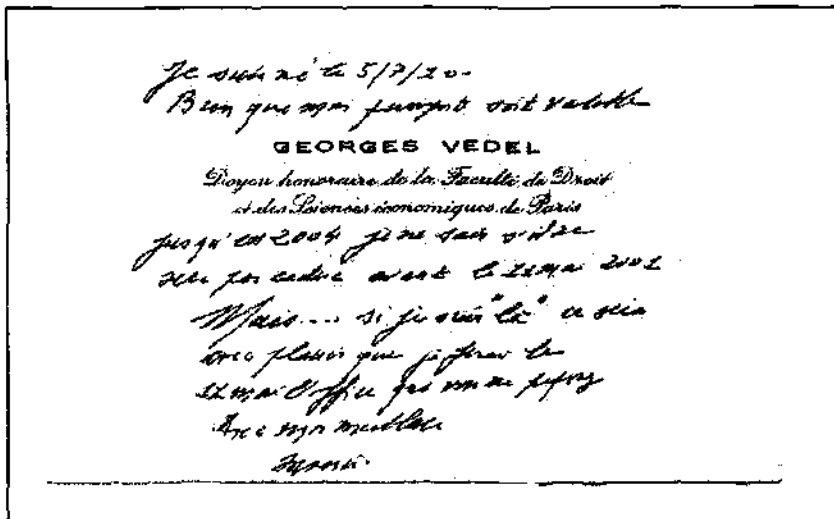 Je suis né le 5/7/10-
Bien que mon passeport soit valable
GEORGES VEDEL
Doyen honoraire de la Faculté de Droit
et des Sciences économiques de Paris
jusqu'en 2004 je ne sais s'il ne
sera pas caduc avant le 22 mai 2002
Mais... si je suis "là" ce sera
avec plaisir que je ferai le
22 mai l'office que vous me
Avec mon meilleur